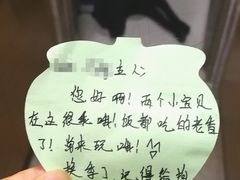 主人
您好啊！两个小宝贝
在这很乖哦！饭都吃的老香
了！偷来玩哦！
换季了 记得给狗